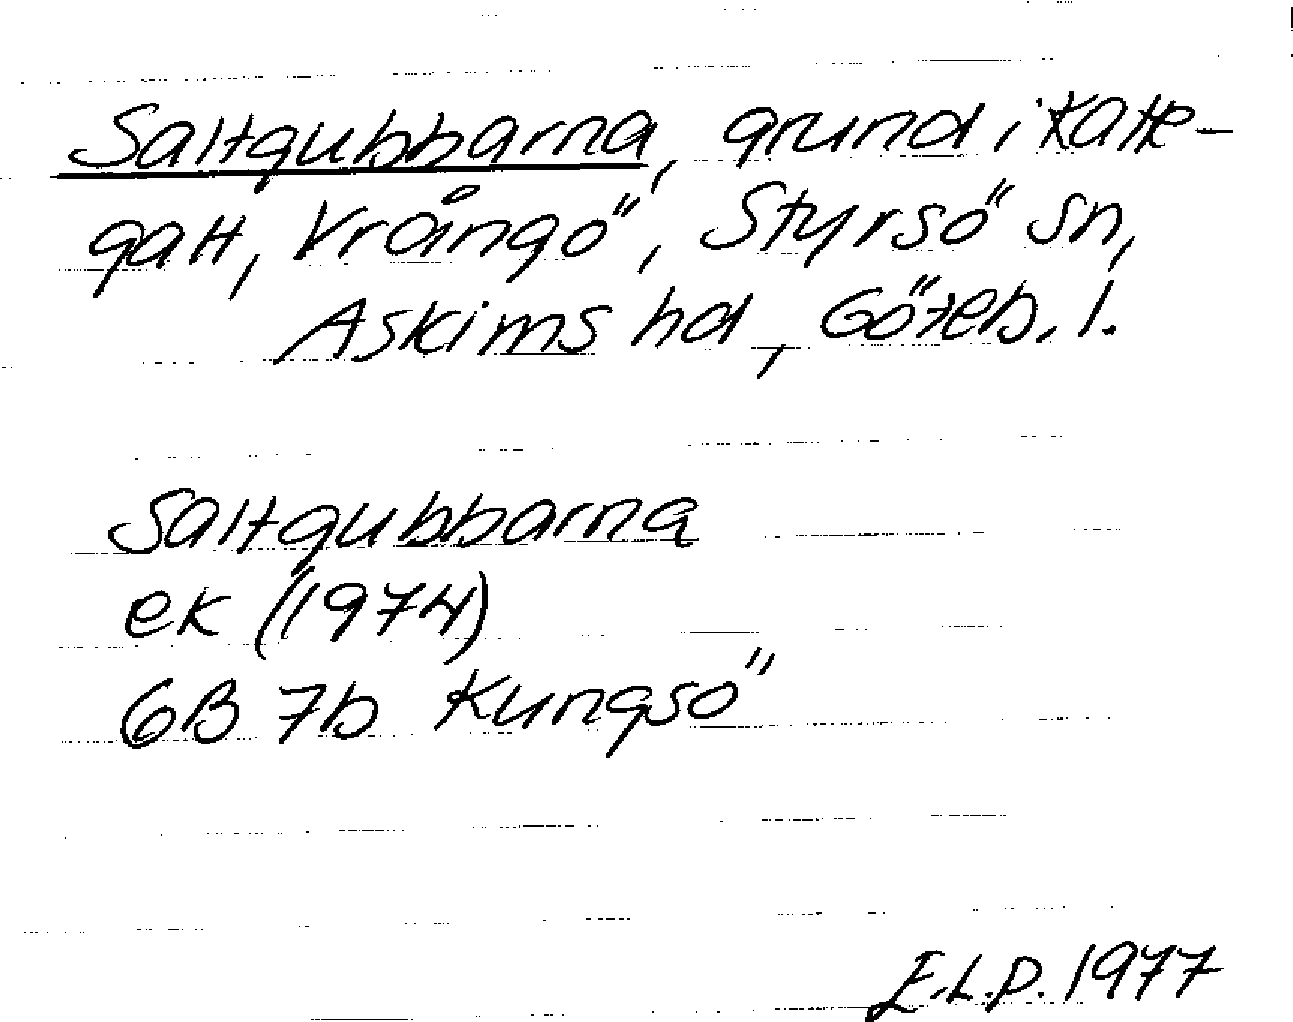 Saltgubbarna, grund i Katte-
gatt, Vrångö, Styrsö sn,
Askims hd, Göteb. l.
Saltgubbarna
ek (1974)
6B 7b Kungsö
E.L.P. 1977